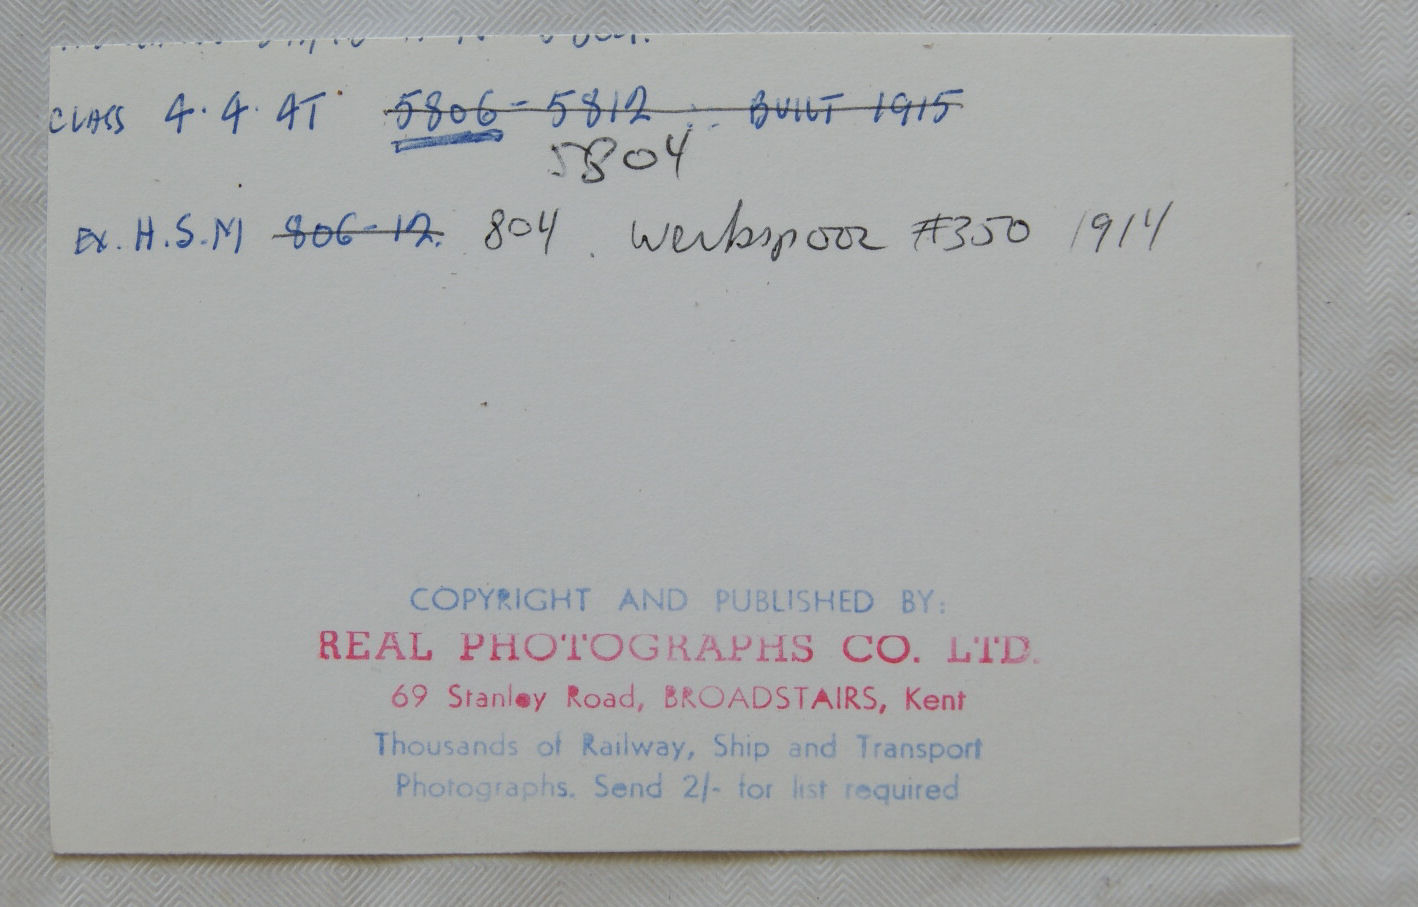 CLASS 4.4.4T 5806 - 5812 : BUILT 1915
5804
EX. H.S.M 806-12. 804 . Werkspoor #350 1914
COPYRIGHT AND PUBLISHED BY:
REAL PHOTOGRAPHS CO. LTD.
69 Stanley Road, BROADSTAIRS, Kent
Thousands of Railway, Ship and Transport
Photographs. Send 2/- for list required